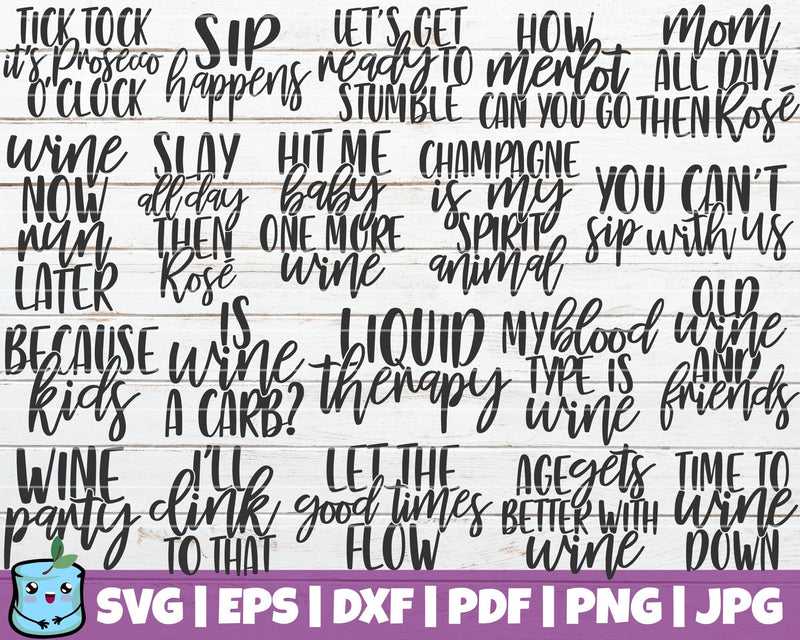 TICK TOCK
it's Prosecco
O'CLOCK
SIP
happens
LET'S GET
ready TO
STUMBLE
HOW
merlot
CAN YOU GO
mom
ALL DAY
THEN Rosé
wine
NOW
run
LATER
SLAY
all day
THEN
Rosé
HIT ME
baby
ONE MORE
wine
CHAMPAGNE
is my
SPIRIT
animal
YOU CAN'T
sip with us
BECAUSE
kids
IS
wine
A CARB?
LIQUID
therapy
MY blood
TYPE IS
wine
OLD
wine
AND
friends
WINE
party
I'LL
dink
TO THAT
LET THE
good times
FLOW
AGE gets
BETTER WITH
wine
TIME TO
wine
DOWN
SVG | EPS | DXF | PDF | PNG | JPG